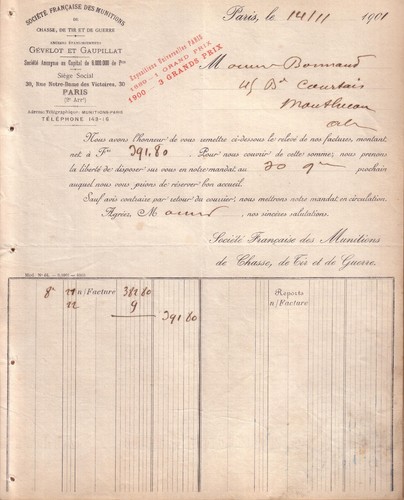 SOCIÉTÉ FRANÇAISE DES MUNITIONS
DE
CHASSE, DE TIR ET DE GUERRE
ANCIENS ÉTABLISSEMENTS
GÉVELOT ET GAUPILLAT
Société Anonyme au Capital de
Siège Social
30, Rue Notre-Dame des Victoires, 30
PARIS
(2e Arrt)
Adresse Télégraphique: MUNITIONS-PARIS
TÉLÉPHONE 143-16
Expositions Universelles PARIS
1 GRAND PRIX
1900 — 3 GRANDS PRIX
Paris, le 14/11 1901
M
45 Bd Courtais
Montlucon
Nous avons l'honneur de vous remettre ci-dessous le relevé de nos factures, montant
net à Fcs 391,80. Pour nous couvrir de cette somme, nous prenons
la liberté de disposer sur vous en notre mandat au 30 prochain
auquel nous vous prions de réserver bon accueil.
Sauf avis contraire par retour du courrier, nous mettrons notre mandat en circulation.
Agréez, M, nos sincères salutations.
Société Française des Munitions
de Chasse, de Tir et de Guerre.
n/Facture 382 80
n/Facture 9
391 80
Reports
n/Facture